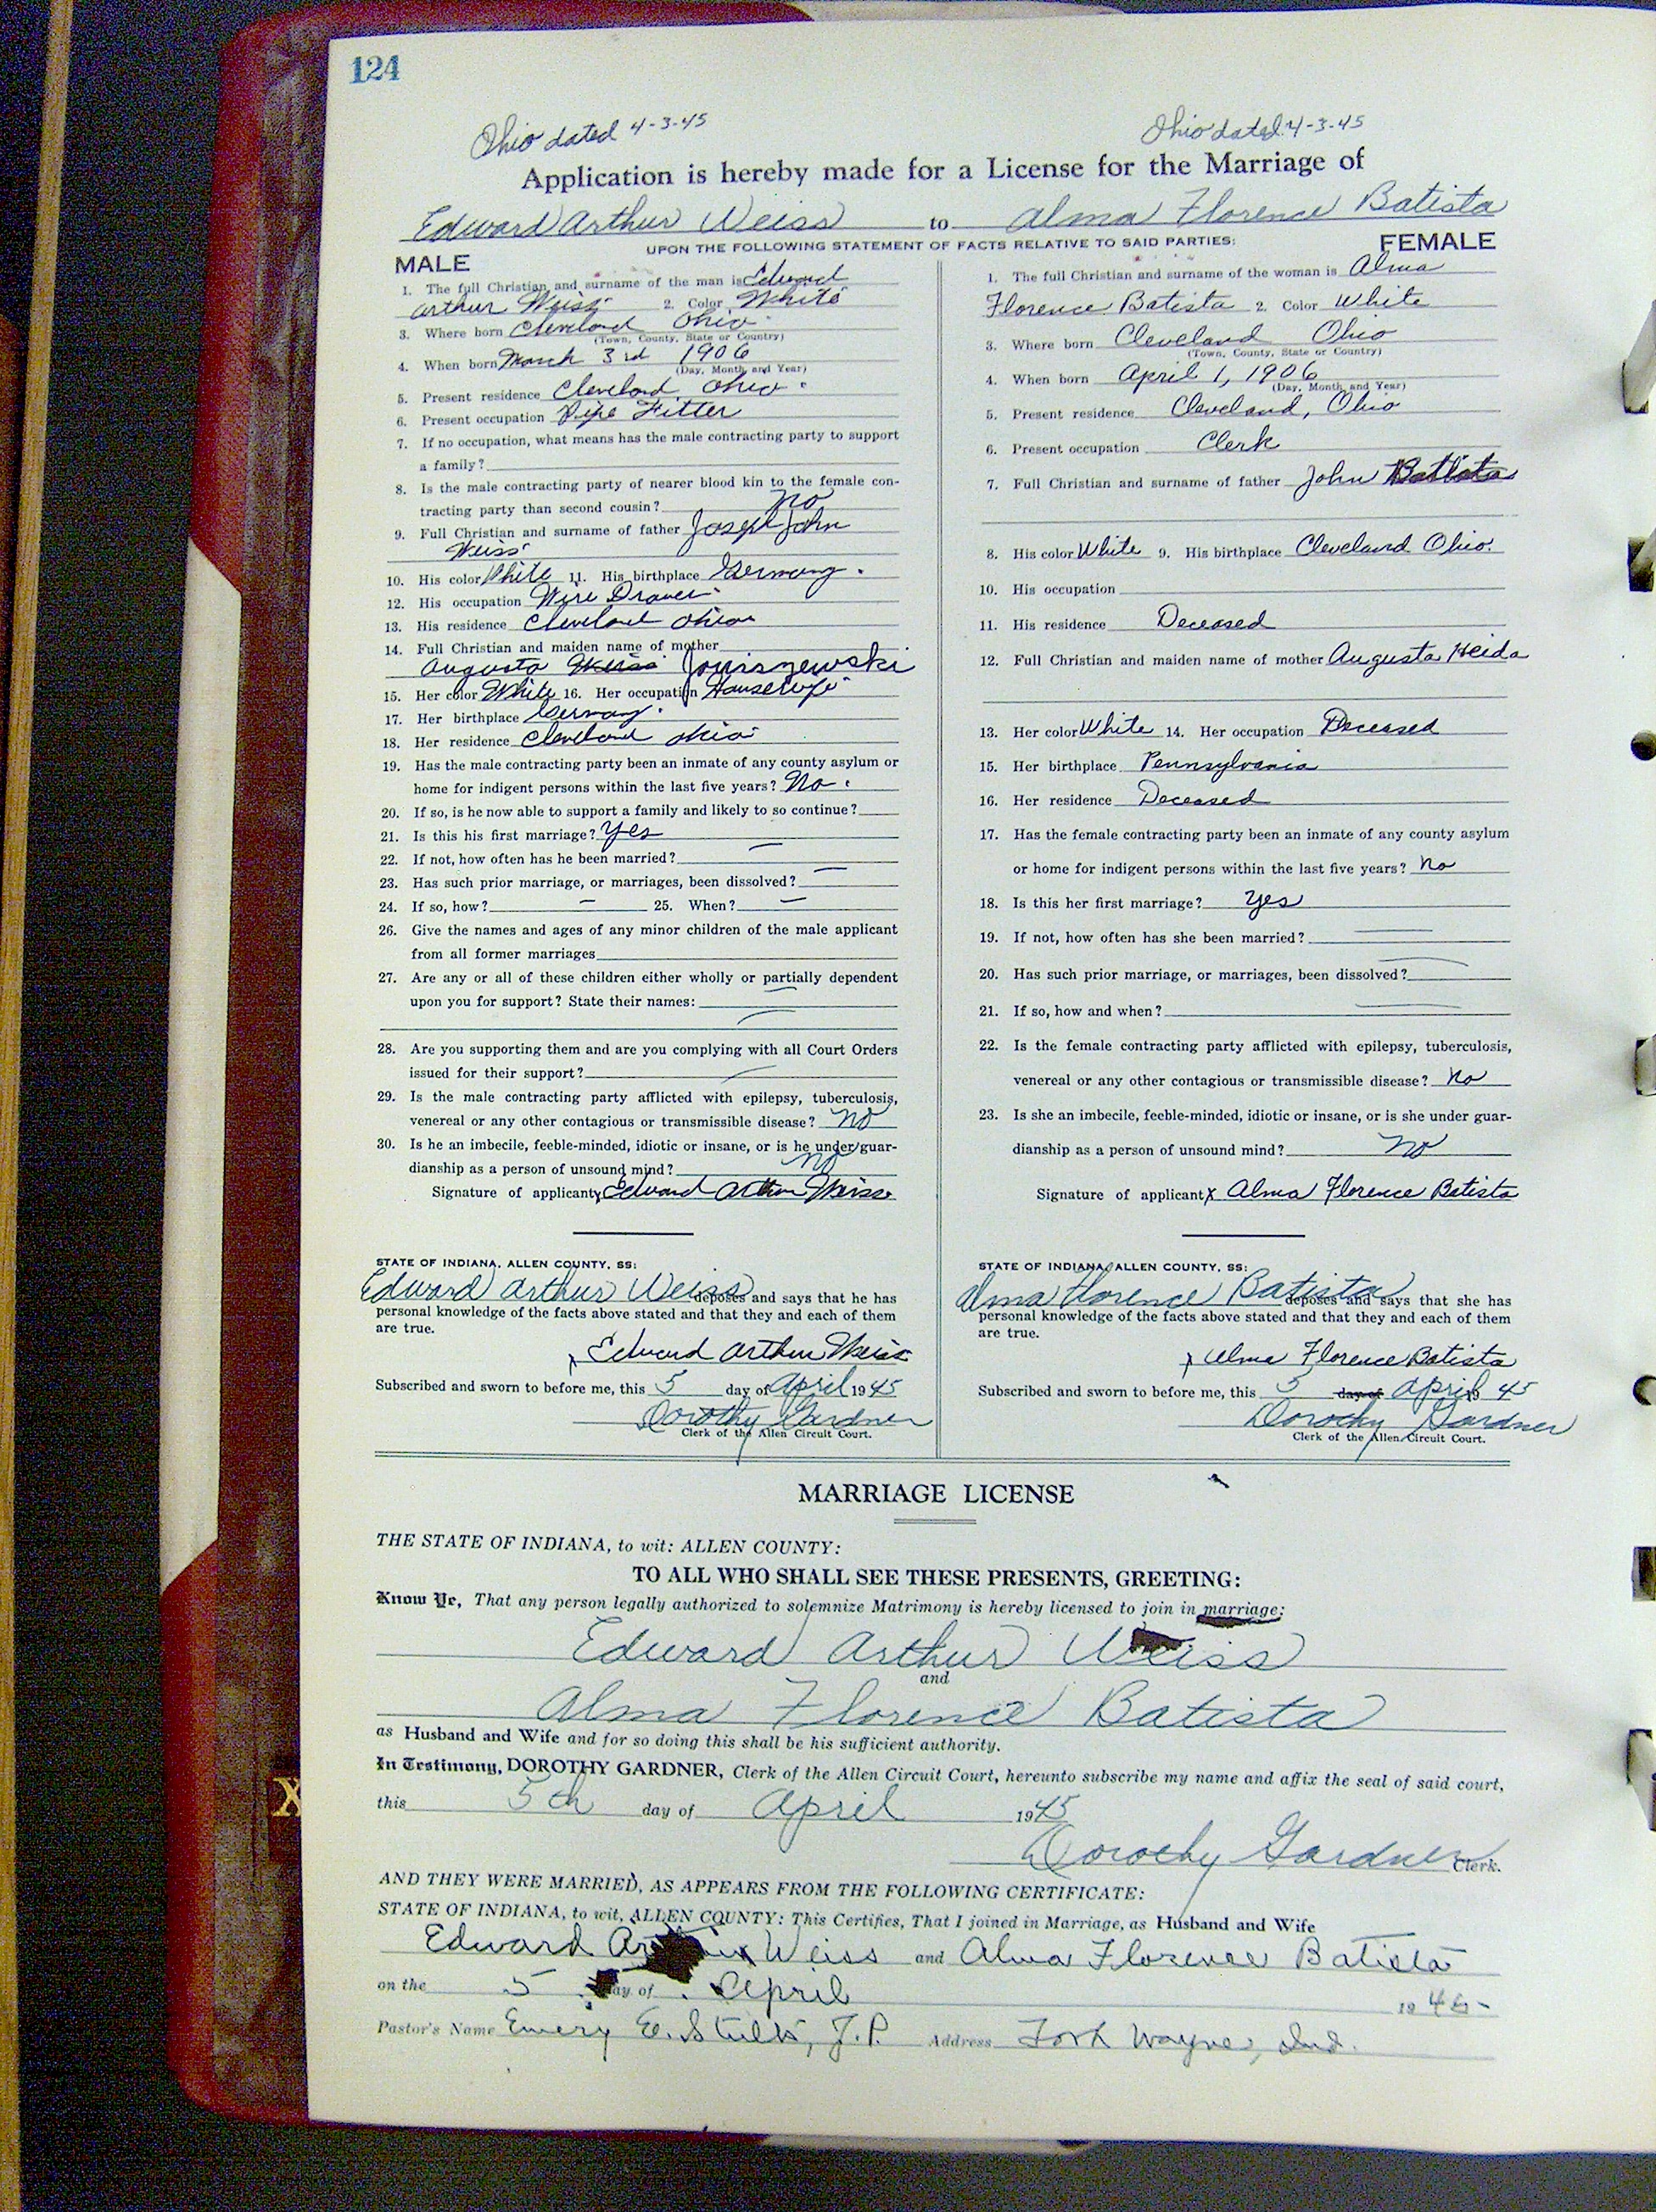 124
Ohio dated 4-3-45
Ohio dated 4-3-45
Application is hereby made for a License for the Marriage of
Edward Arthur Weiss to Alma Florence Batista
UPON THE FOLLOWING STATEMENT OF FACTS RELATIVE TO SAID PARTIES:
MALE
1. The full Christian and surname of the man is Edward
Arthur Weiss 2. Color White
3. Where born Cleveland Ohio
(Town, County, State or Country)
4. When born March 3rd 1906
(Day, Month and Year)
5. Present residence Cleveland Ohio
6. Present occupation Pipe Fitter
7. If no occupation, what means has the male contracting party to support
a family?
8. Is the male contracting party of nearer blood kin to the female con-
tracting party than second cousin? No
9. Full Christian and surname of father Joseph John
Weiss
10. His color White 11. His birthplace Germany.
12. His occupation Wire Drawer
13. His residence Cleveland Ohio
14. Full Christian and maiden name of mother
Augusta Weiss
15. Her color White 16. Her occupation Housewife
17. Her birthplace Germany.
18. Her residence Cleveland Ohio
19. Has the male contracting party been an inmate of any county asylum or
home for indigent persons within the last five years? No.
20. If so, is he now able to support a family and likely to so continue?
21. Is this his first marriage? Yes
22. If not, how often has he been married? —
23. Has such prior marriage, or marriages, been dissolved? —
24. If so, how? — 25. When? —
26. Give the names and ages of any minor children of the male applicant
from all former marriages
27. Are any or all of these children either wholly or partially dependent
upon you for support? State their names: —
—
28. Are you supporting them and are you complying with all Court Orders
issued for their support? —
29. Is the male contracting party afflicted with epilepsy, tuberculosis,
venereal or any other contagious or transmissible disease? No
30. Is he an imbecile, feeble-minded, idiotic or insane, or is he under guar-
dianship as a person of unsound mind? No
Signature of applicant x Edward Arthur Weiss
STATE OF INDIANA, ALLEN COUNTY, SS:
Edward Arthur Weiss deposes and says that he has
personal knowledge of the facts above stated and that they and each of them
are true.
x Edward Arthur Weiss
Subscribed and sworn to before me, this 5 day of April 1945
Dorothy Gardner
Clerk of the Allen Circuit Court.
FEMALE
1. The full Christian and surname of the woman is Alma
Florence Batista 2. Color White
3. Where born Cleveland Ohio
(Town, County, State or Country)
4. When born April 1, 1906
(Day, Month and Year)
5. Present residence Cleveland, Ohio
6. Present occupation Clerk
7. Full Christian and surname of father John Batista
8. His color White 9. His birthplace Cleveland Ohio.
10. His occupation
11. His residence Deceased
12. Full Christian and maiden name of mother Augusta Heida
13. Her color White 14. Her occupation Deceased
15. Her birthplace Pennsylvania
16. Her residence Deceased
17. Has the female contracting party been an inmate of any county asylum
or home for indigent persons within the last five years? No
18. Is this her first marriage? Yes
19. If not, how often has she been married? —
20. Has such prior marriage, or marriages, been dissolved? —
21. If so, how and when? —
22. Is the female contracting party afflicted with epilepsy, tuberculosis,
venereal or any other contagious or transmissible disease? No
23. Is she an imbecile, feeble-minded, idiotic or insane, or is she under guar-
dianship as a person of unsound mind? No
Signature of applicant x Alma Florence Batista
STATE OF INDIANA, ALLEN COUNTY, SS:
Alma Florence Batista deposes and says that she has
personal knowledge of the facts above stated and that they and each of them
are true.
x Alma Florence Batista
Subscribed and sworn to before me, this 5 day of April 19 45
Dorothy Gardner
Clerk of the Allen Circuit Court.
MARRIAGE LICENSE
THE STATE OF INDIANA, to wit: ALLEN COUNTY:
TO ALL WHO SHALL SEE THESE PRESENTS, GREETING:
Know Ye, That any person legally authorized to solemnize Matrimony is hereby licensed to join in marriage:
Edward Arthur Weiss
and
Alma Florence Batista
as Husband and Wife and for so doing this shall be his sufficient authority.
In Testimony, DOROTHY GARDNER, Clerk of the Allen Circuit Court, hereunto subscribe my name and affix the seal of said court,
this 5th day of April 1945
Dorothy Gardner Clerk.
AND THEY WERE MARRIED, AS APPEARS FROM THE FOLLOWING CERTIFICATE:
STATE OF INDIANA, to wit, ALLEN COUNTY: This Certifies, That I joined in Marriage, as Husband and Wife
Edward Arthur Weiss and Alma Florence Batista
on the 5 day of April 1945
Pastor's Name Emery E. Stults, J.P. Address Fort Wayne, Ind.
X